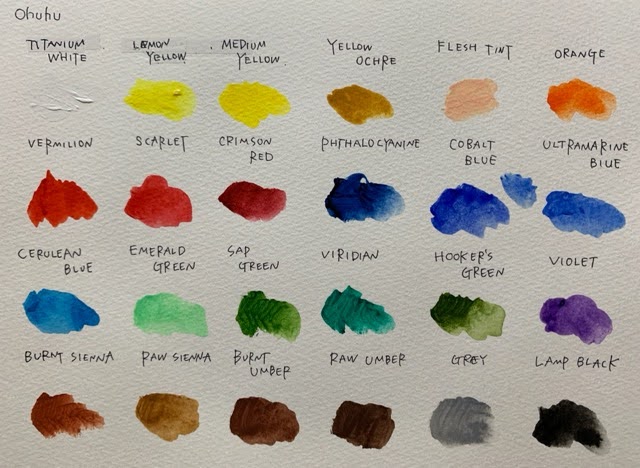 Ohuhu
TITANIUM WHITE
LEMON YELLOW
MEDIUM YELLOW
YELLOW OCHRE
FLESH TINT
ORANGE
VERMILION
SCARLET
CRIMSON RED
PHTHALOCYANINE
COBALT BLUE
ULTRAMARINE BLUE
CERULEAN BLUE
EMERALD GREEN
SAP GREEN
VIRIDIAN
HOOKER'S GREEN
VIOLET
BURNT SIENNA
RAW SIENNA
BURNT UMBER
RAW UMBER
GREY
LAMP BLACK